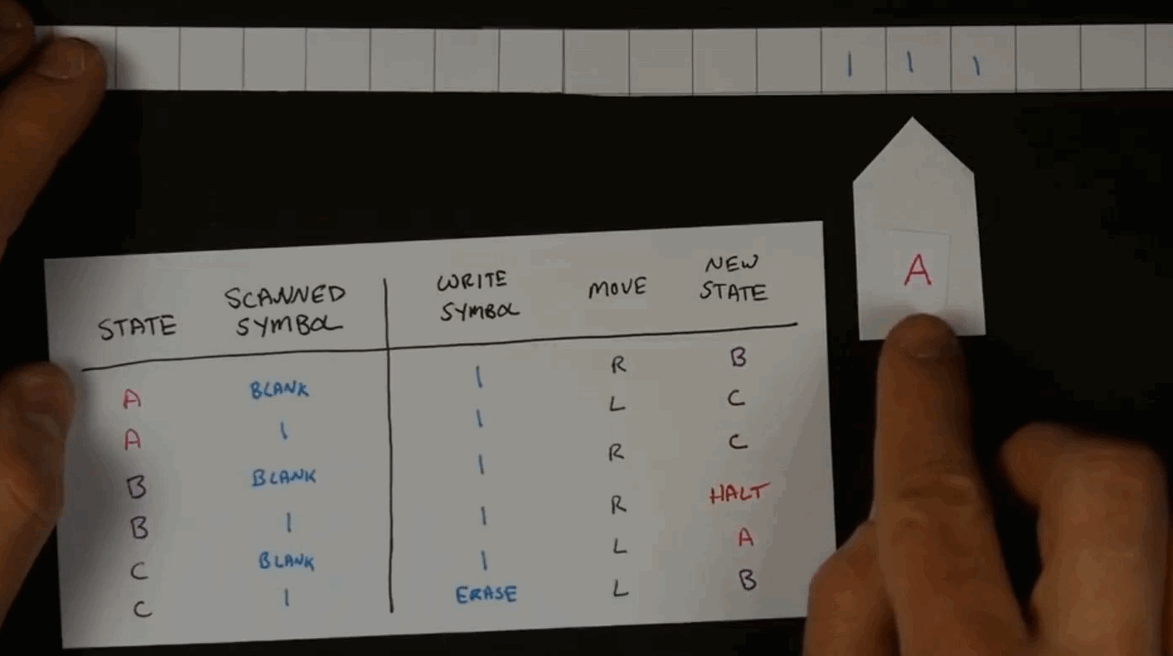 1 1 1
A
STATE SCANNED SYMBOL WRITE SYMBOL MOVE NEW STATE
A BLANK 1 R B
A 1 1 L C
B BLANK 1 R C
B 1 1 R HALT
C BLANK 1 L A
C 1 ERASE L B